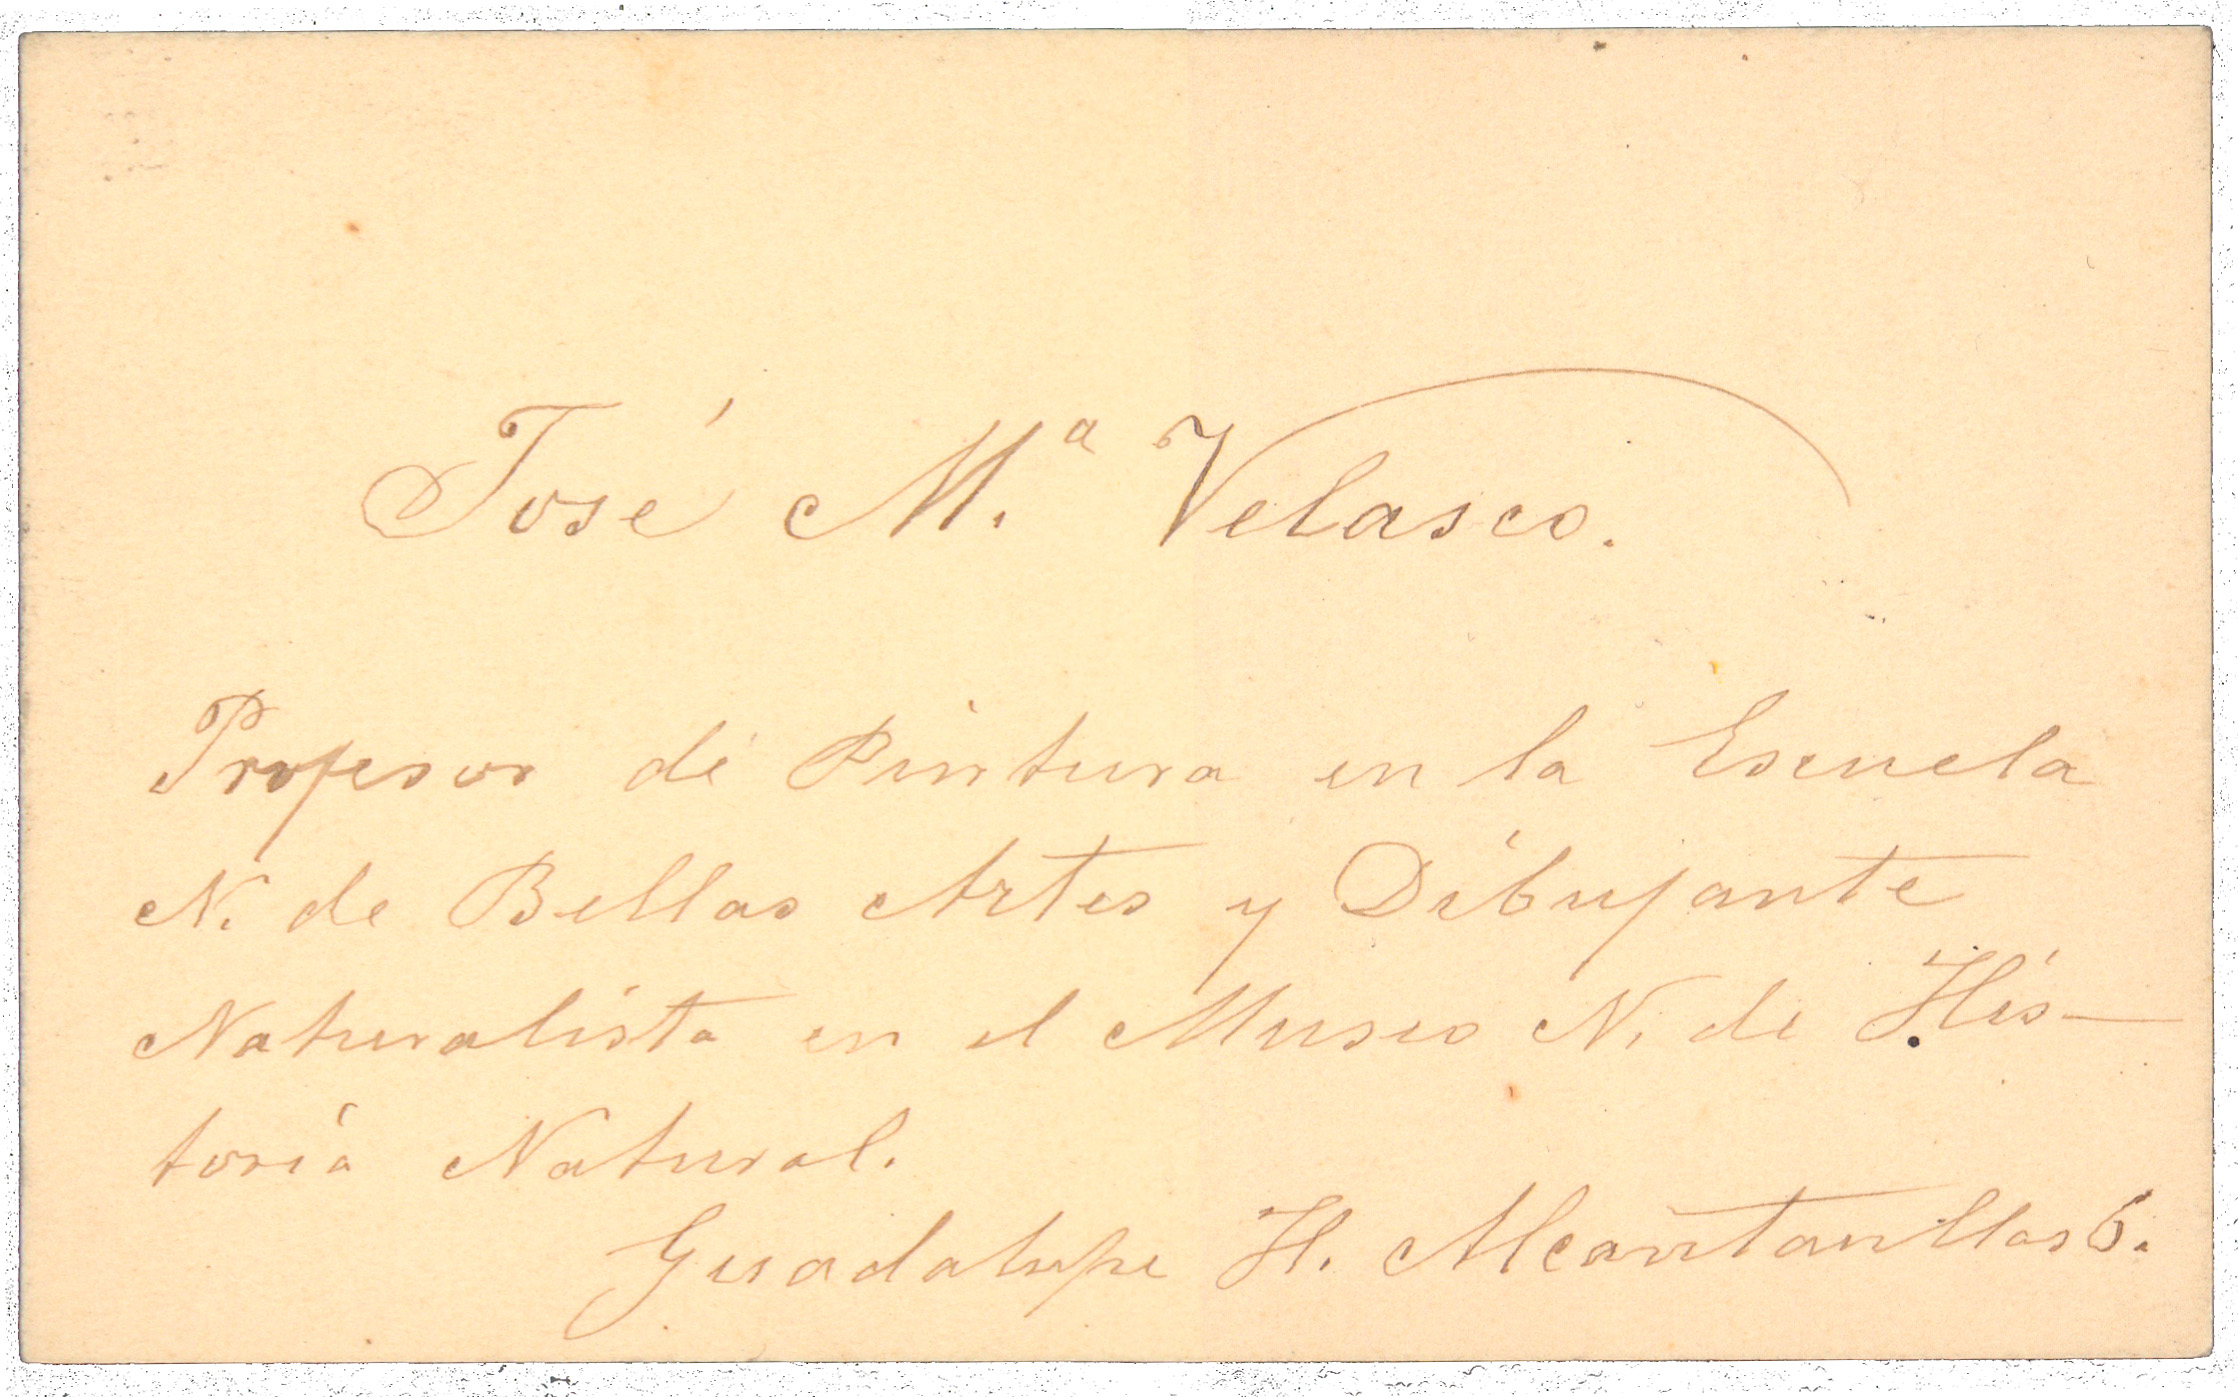 José M.ª Velasco.
Profesor de Pintura en la Escuela
N. de Bellas Artes y Dibujante
Naturalista en el Museo N. de His-
toria Natural.
Guadalupe H. Alcantarillas 6.